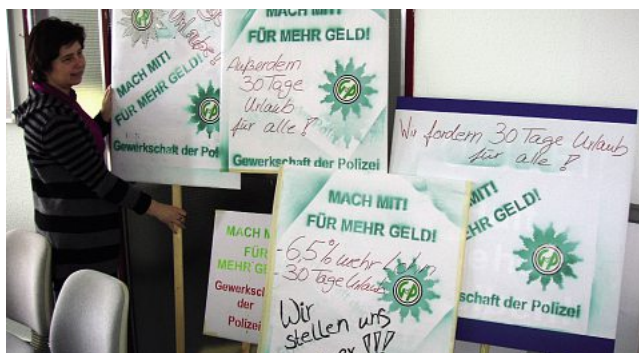 Urlaub!
MACH MIT!
FÜR MEHR GELD!
GdP
Gewerkschaft der Pol
MACH MIT!
FÜR MEHR GELD!
Außerdem
30 Tage
Urlaub
für alle!
GdP
Gewerkschaft der Polizei
Wir fordern 30 Tage Urlaub
für alle!
MIT!
HR GELD!
GdP
schaft der Polizei
MACH M
FÜR
MEHR GE
Gewerksc
der
Polizei
MACH MIT!
FÜR MEHR GELD!
-6,5% mehr Lohn
-30 Tage Urlaub
GdP
Wir
stellen uns